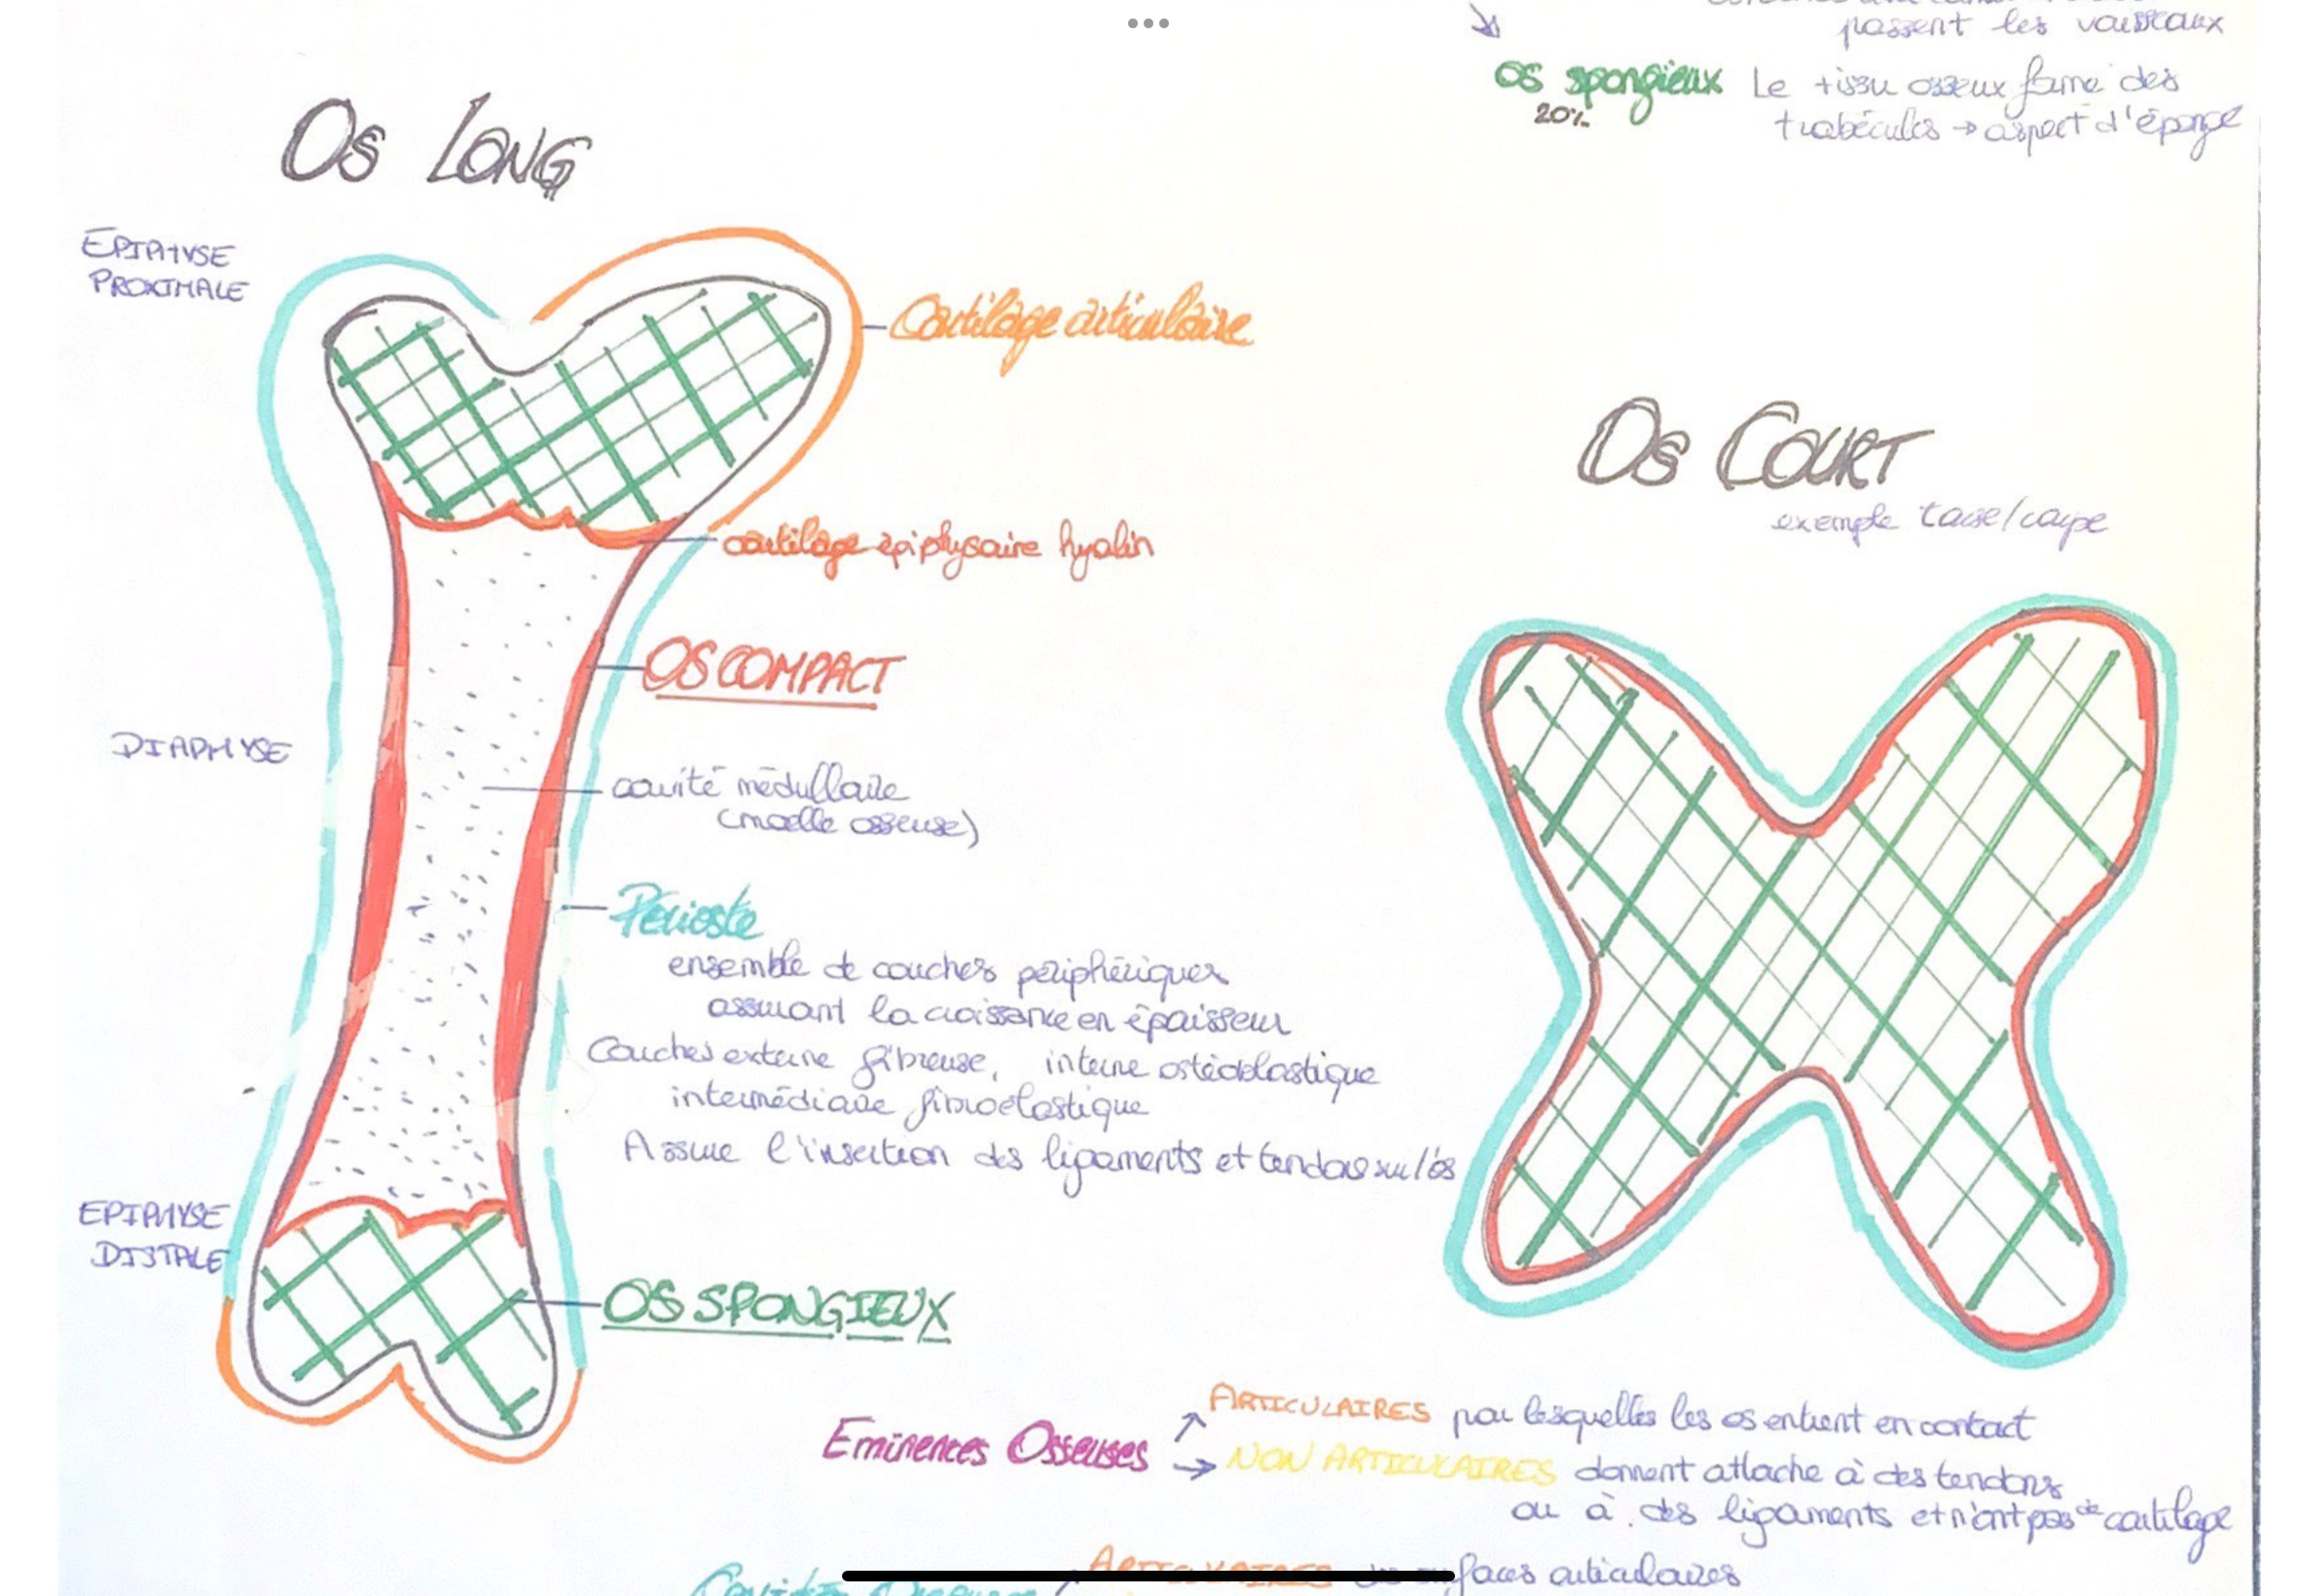 passent les vaisseaux
os spongieux Le tissu osseux forme des
20% trabécules → aspect d'éponge
Os Long
EPIPHYSE
PROXIMALE
Cartilage articulaire
cartilage épiphysaire hyalin
OS COMPACT
DIAPHYSE
cavité médullaire
(moelle osseuse)
Périoste
ensemble de couches périphériques
assurant la croissance en épaisseur
Couches externe fibreuse, interne ostéoblastique
intermédiaire fibroelastique
Assure l'insertion des ligaments et tendons sur l'os
EPIPHYSE
DISTALE
OS SPONGIEUX
Os Court
exemple
Eminences Osseuses
↗ ARTICULAIRES par lesquelles les os entrent en contact
→ NON ARTICULAIRES donnent attache à des tendons
ou à des ligaments et n'ont pas de cartilage
ARTICULAIRES articulaires